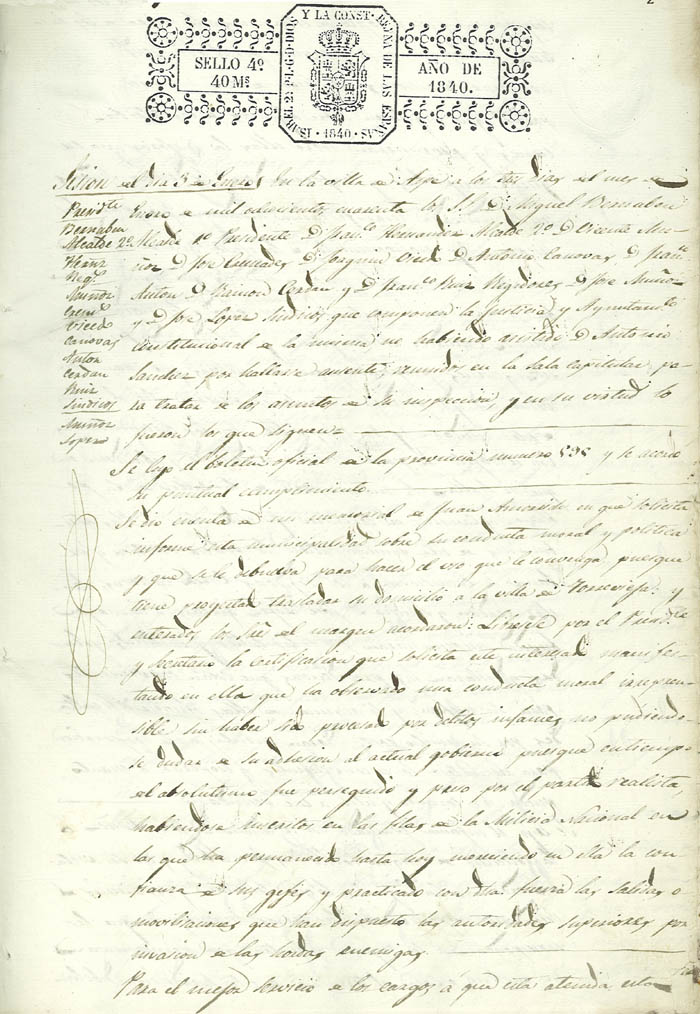 2
ISABEL 2ª P.L.G.D. DIOS Y LA CONST. REYNA DE LAS ESPAÑAS
1840
SELLO 4º
40 Ms
AÑO DE
1840.
Sesion del dia 3 de Enero
Presidte
Bernabeu
Alcalde 2º
Hernz
Regs
Muñoz
Cremds
Vicedo
Canovas
Anton
Cerdan
Ruiz
Sindicos
Muñoz
Lopez
En la villa de Aspe a los tres dias del mes de
Enero de mil ochocientos cuarenta los S.S. D. Miguel Bernabeu
Alcalde 1º Presidente D. Franco Hernandez Alcalde 2º D. Vicente Mu-
ñoz D. Jose D. Joaquin Vicedo D. Antonio Canovas D. Franco
Anton D. Ramon Cerdan y D. Franco Ruiz Regidores D. Jose Muñoz
y D. Jose Lopez Sindicos que componen la justicia y Ayuntamto
constitucional de la misma no habiendo asistido D. Antonio
Sanchez por hallarse ausente, reunidos en la sala capitular pa-
ra tratar de los asuntos de su inspeccion, y en su virtud lo
fueron los que siguen
Se leyo el boletin oficial de la provincia numero 595 y se acordo
su puntual cumplimiento.
Se dio cuenta de un memorial de Juan en que solicita
informe esta municipalidad sobre su conducta moral y politica
y que se le debuelva para hacer el uso que le convenga, puesque
tiene proyectado trasladar su domicilio a la villa de Torrevieja: y
enterados los Sres del margen acordaron: Librese por el Presidte
y Secretario la certificacion que solicita este interesado manifes-
tando en ella que ha observado una conducta moral irrepren-
sible sin haber sido procesado por delitos infames, no pudiendo-
se dudar de su adhesion al actual gobierno puesque en tiempo
del absolutismo fue perseguido y preso por el partido realista,
habiendose inscrito en las filas de la Milicia Nacional en
las que ha permanecido hasta hoy mereciendo en ella la con
fianza de sus gefes y practicado con dha fuerza las salidas o
movilizaciones que han dispuesto las autoridades superiores por
invasion de las hordas enemigas.
Para el mejor servicio de los cargos a que esta atenida esta